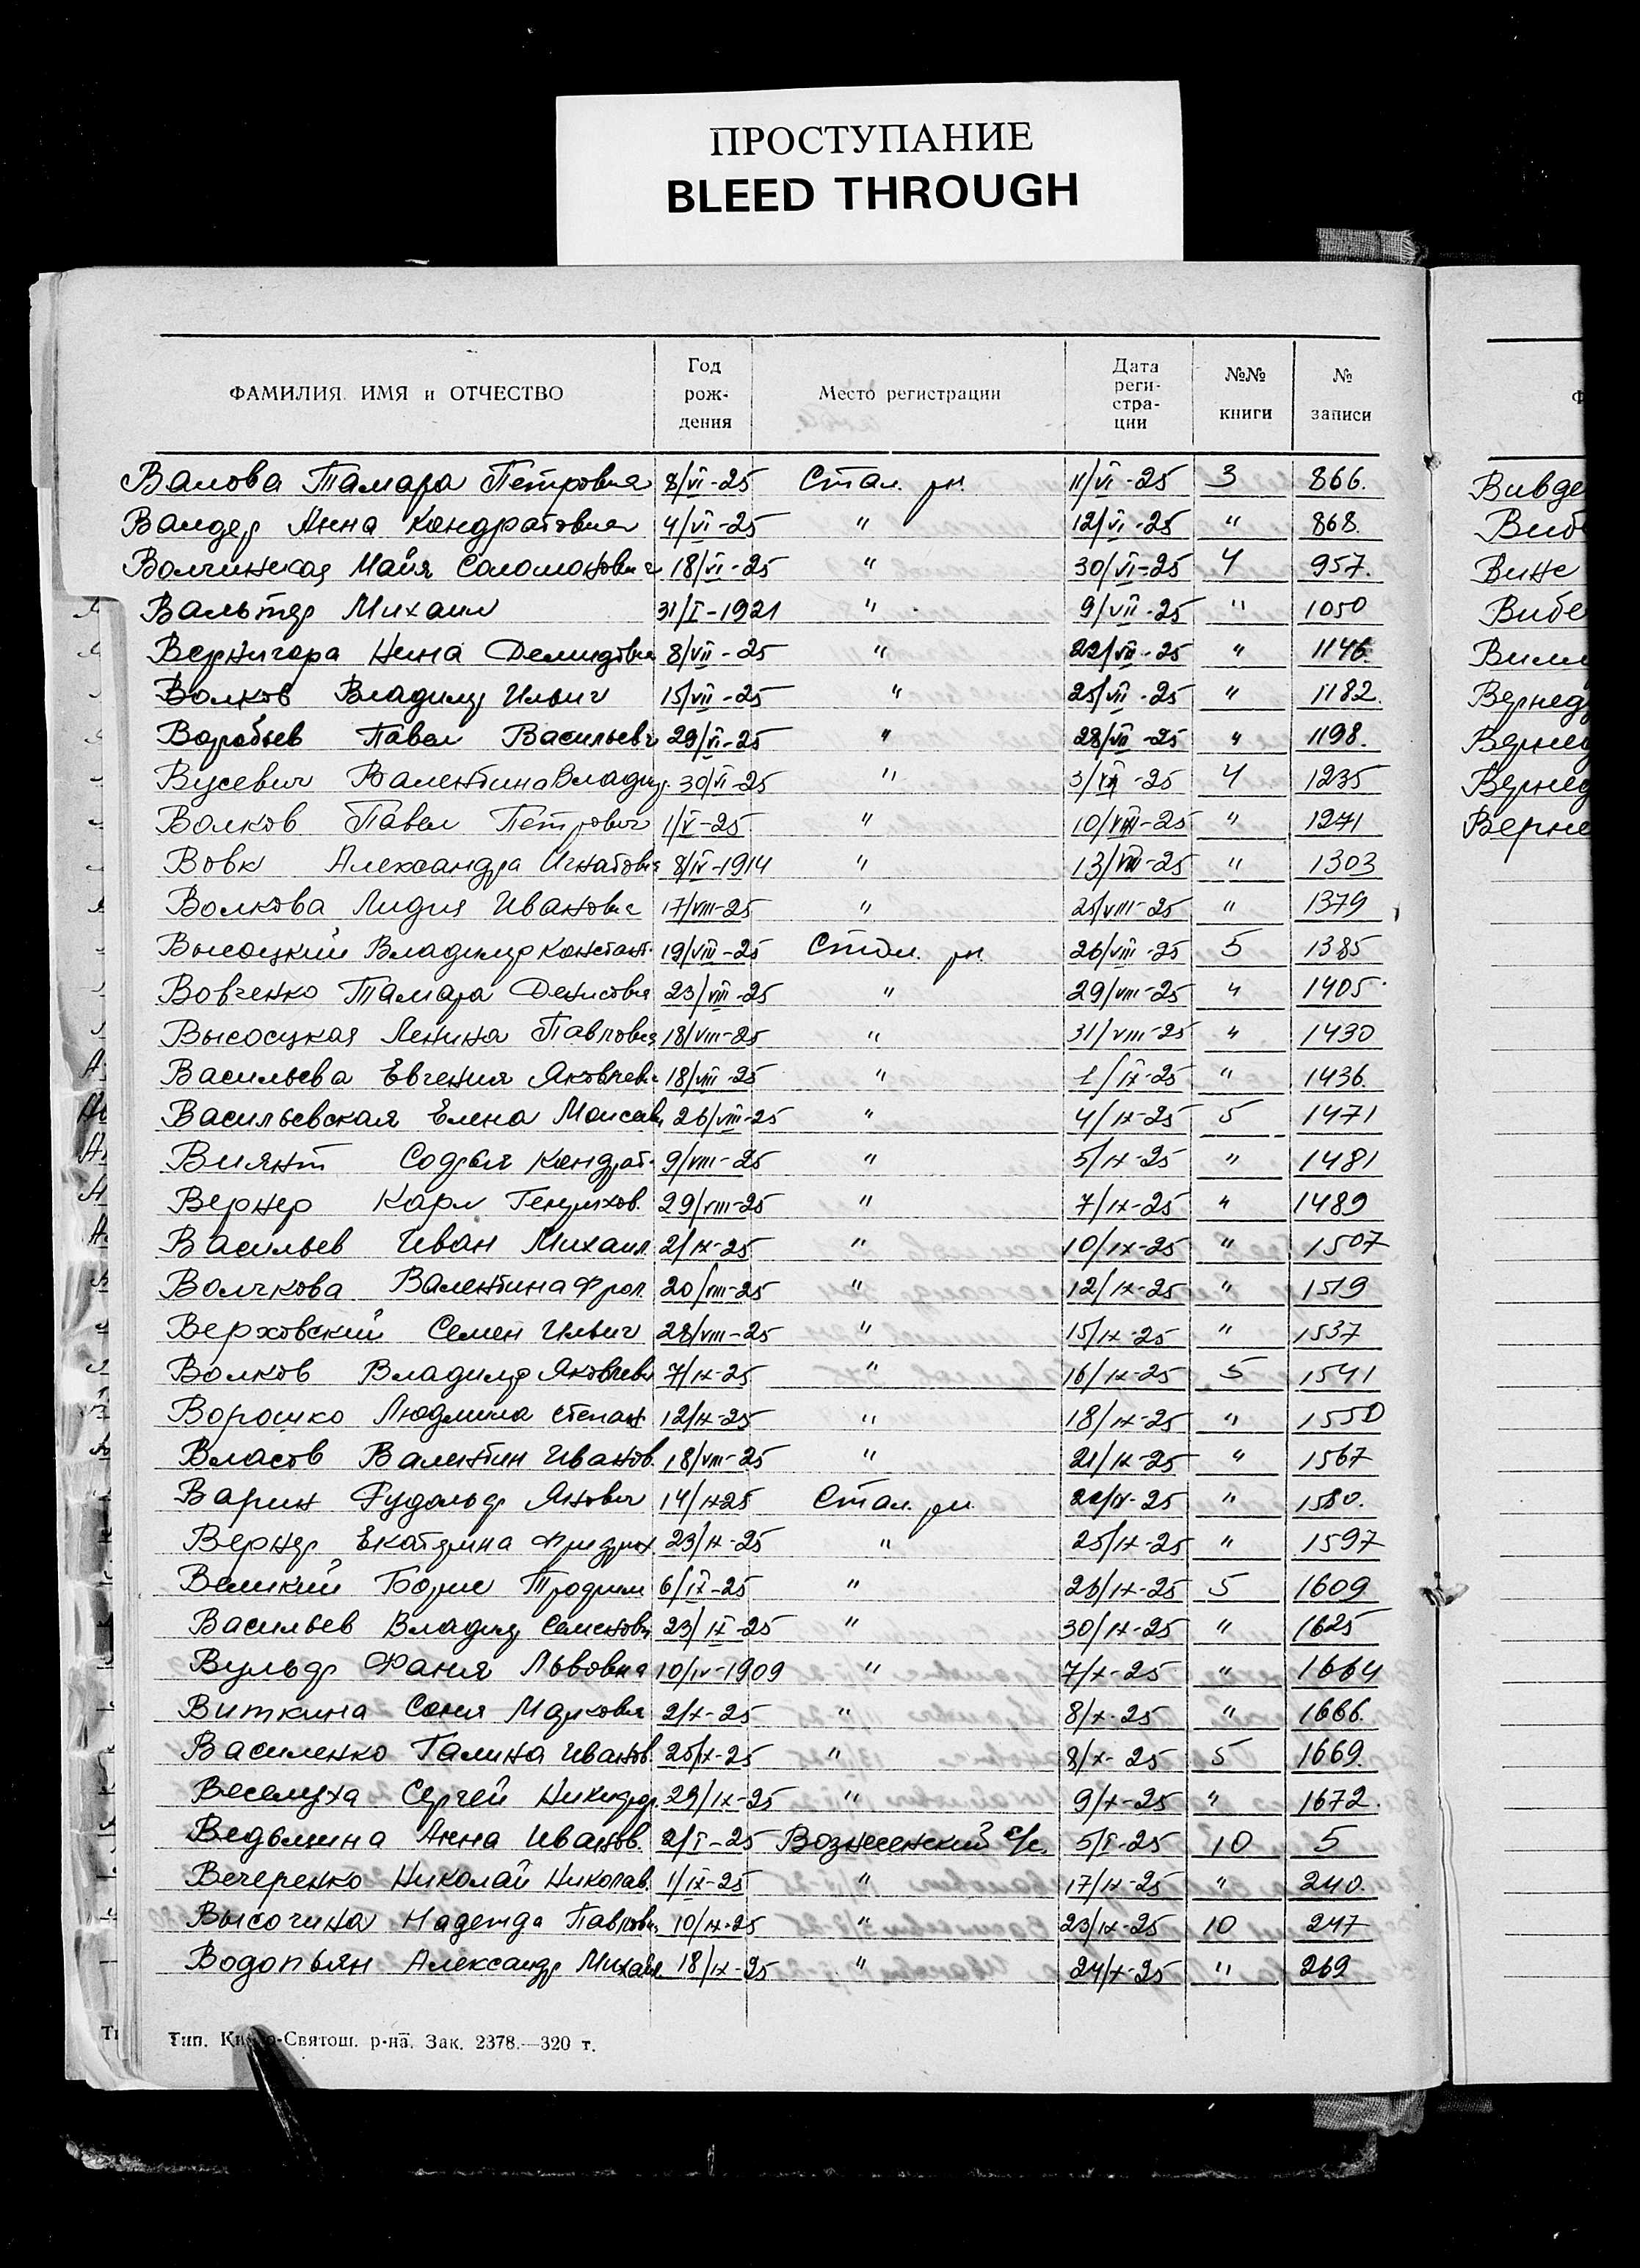 ПРОСТУПАНИЕ
BLEED THROUGH
ФАМИЛИЯ ИМЯ и ОТЧЕСТВО Год рож- дения Место регистрации Дата реги- стра- ции №№ книги № записи
Валова Тамара Петровна 8/VI-25 Стал. рн. 11/VI-25 3 866.
Валдер Анна Кондратовна 4/VI-25 " 12/VI-25 " 868.
Волчинская Майя Соломоновна 18/VI-25 " 30/VI-25 4 957.
Вальтер Михаил 31/I-1921 " 9/VII-25 " 1050
Вернигора Нина Демидовна 8/VII-25 " 22/VII-25 " 1146.
Волков Владимир Ильич 15/VII-25 " 25/VII-25 " 1182.
Воробьев Павел Васильевич 29/VI-25 " 28/VII-25 " 1198.
Вусевич Валентина Владим. 30/VI-25 " 3/ -25 4 1235
Волков Павел Петрович 1/V-25 " 10/VIII-25 " 1271
Вовк Александра Игнатовна 8/IV-1914 " 13/VIII-25 " 1303
Волкова Лидия Ивановна 17/VIII-25 " 25/VIII-25 " 1379
Высоцкий Владимир Констант. 19/VIII-25 Стал. рн. 26/VIII-25 5 1385
Вовченко Тамара Денисовна 23/VIII-25 " 29/VIII-25 " 1405
Высоцкая Ленина Павловна 18/VIII-25 " 31/VIII-25 " 1430
Васильева Евгения Яковлевн 18/VIII-25 " 1/IX-25 " 1436.
Васильевская Елена Моисеевн 26/VIII-25 " 4/IX-25 5 1471
Виянт Софья Кондрат. 9/VIII-25 " 5/IX-25 " 1481
Вернер Карл Генрихов. 29/VIII-25 " 7/IX-25 " 1489
Васильев Иван Михаил 2/IX-25 " 10/IX-25 " 1507
Волчкова Валентина Фрол. 20/VIII-25 " 12/IX-25 " 1519
Верховский Семен Ильич 28/VIII-25 " 15/IX-25 " 1537
Волков Владимир Яковлевич 7/IX-25 " 16/IX-25 5 1541
Ворошко Людмила Степан 12/IX-25 " 18/IX-25 " 1550
Власов Валентин Иванов. 18/VIII-25 " 21/IX-25 " 1567
Варин Рудольф Янович 14/IX25 Стал. рн. 22/IX-25 " 1580.
Вернер Екатерина Фридрих 23/IX-25 " 25/IX-25 " 1597
Великий Борис Трофим 6/IX-25 " 26/IX-25 5 1609
Васильев Владимир Семенович 23/IX-25 " 30/IX-25 " 1625
Вульф Фаня Львовна 10/IV-1909 " 7/X-25 " 1664
Виткина Соня Марковна 2/X-25 " 8/X-25 " 1666.
Василенко Галина Иванов. 25/IX-25 " 8/X-25 5 1669.
Веселуха Сергей Никифор. 29/IX-25 " 9/X-25 " 1672.
Ведьмина Анна Иванов. 2/I-25 Вознесенский с/с. 5/I-25 10 5
Вечеренко Николай Николав. 1/IX-25 " 17/IX-25 " 240.
Высочина Надежда Павловн 10/IX-25 " 23/IX-25 10 247
Водопьян Александр Михайл. 18/IX-25 " 24/X-25 " 269
Тип. -Святош. р-на. Зак. 2378.—320 т.